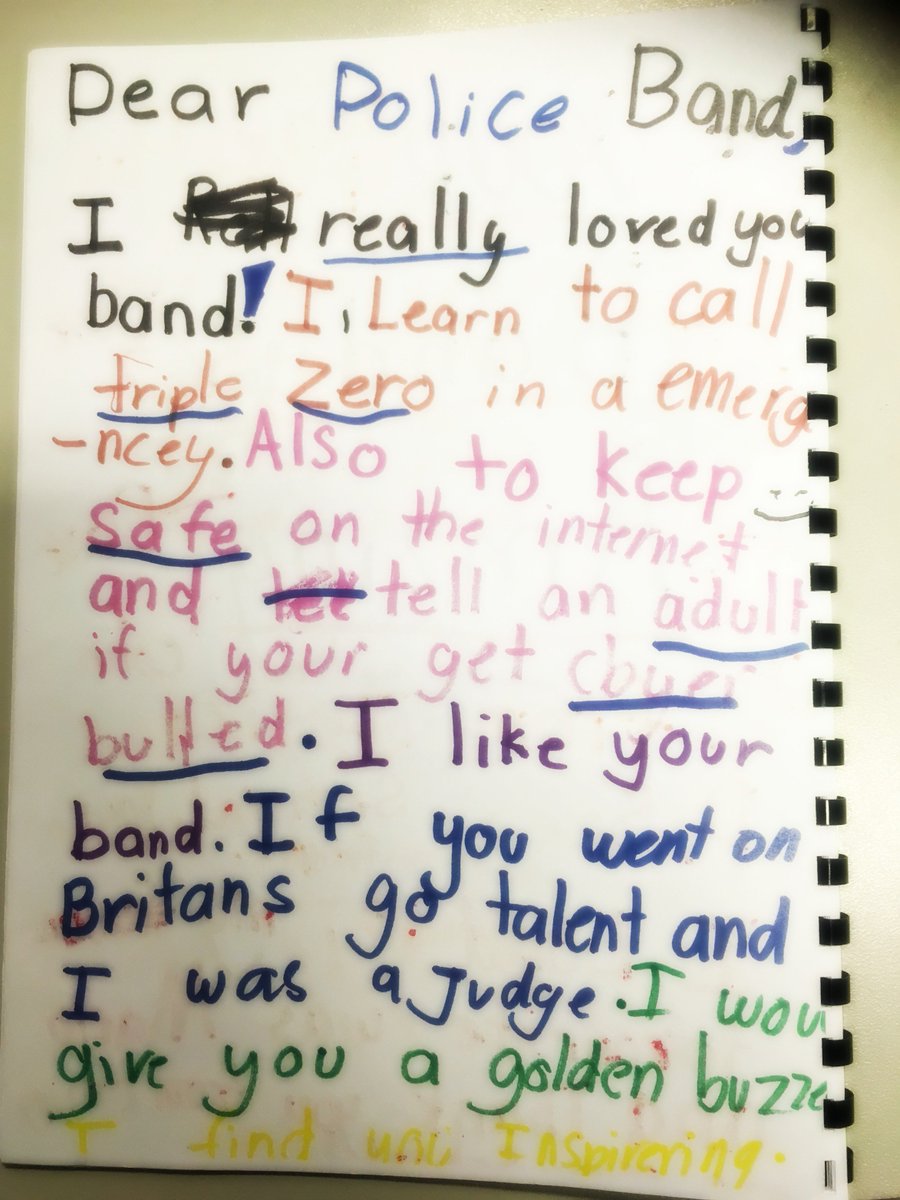 Dear Police Band,
I really loved you
band! I, Learn to call
triple Zero in a emerg
-ncey. Also to keep
safe on the internet
and tell an adult
if your get
bullted. I like your
band. If you went on
Britans go talent and
I was a Judge. I wou
give you a golden buzze
I find you Inspirering.